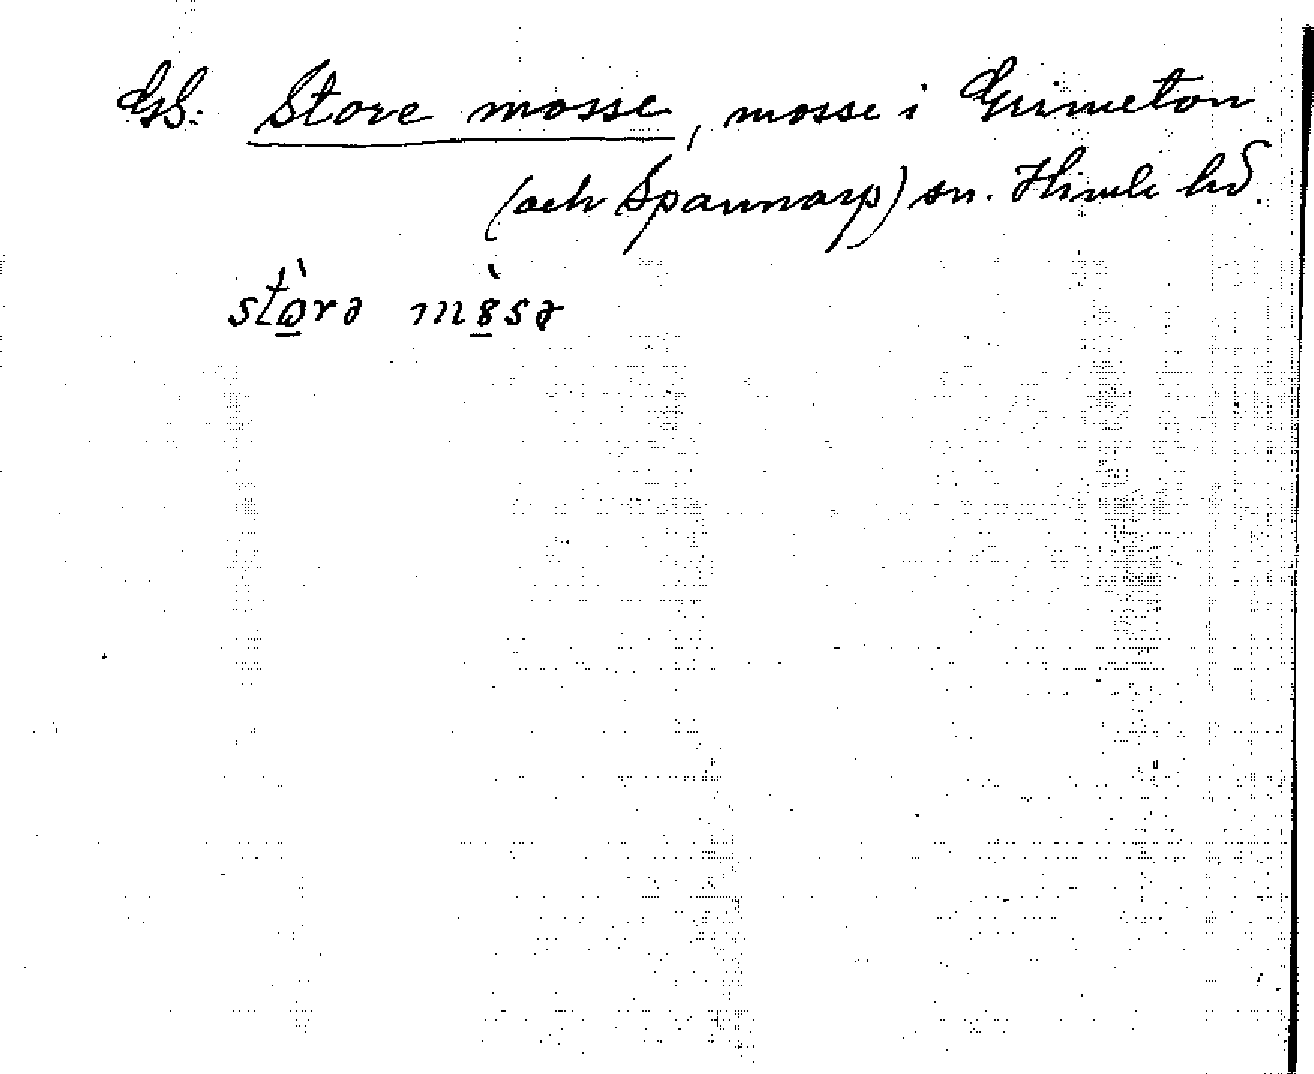 GS: Store mosse, mosse i Grimeton
(och Spannarp) sn. Himle hd.
stɷ̀rə mɞ̀sə